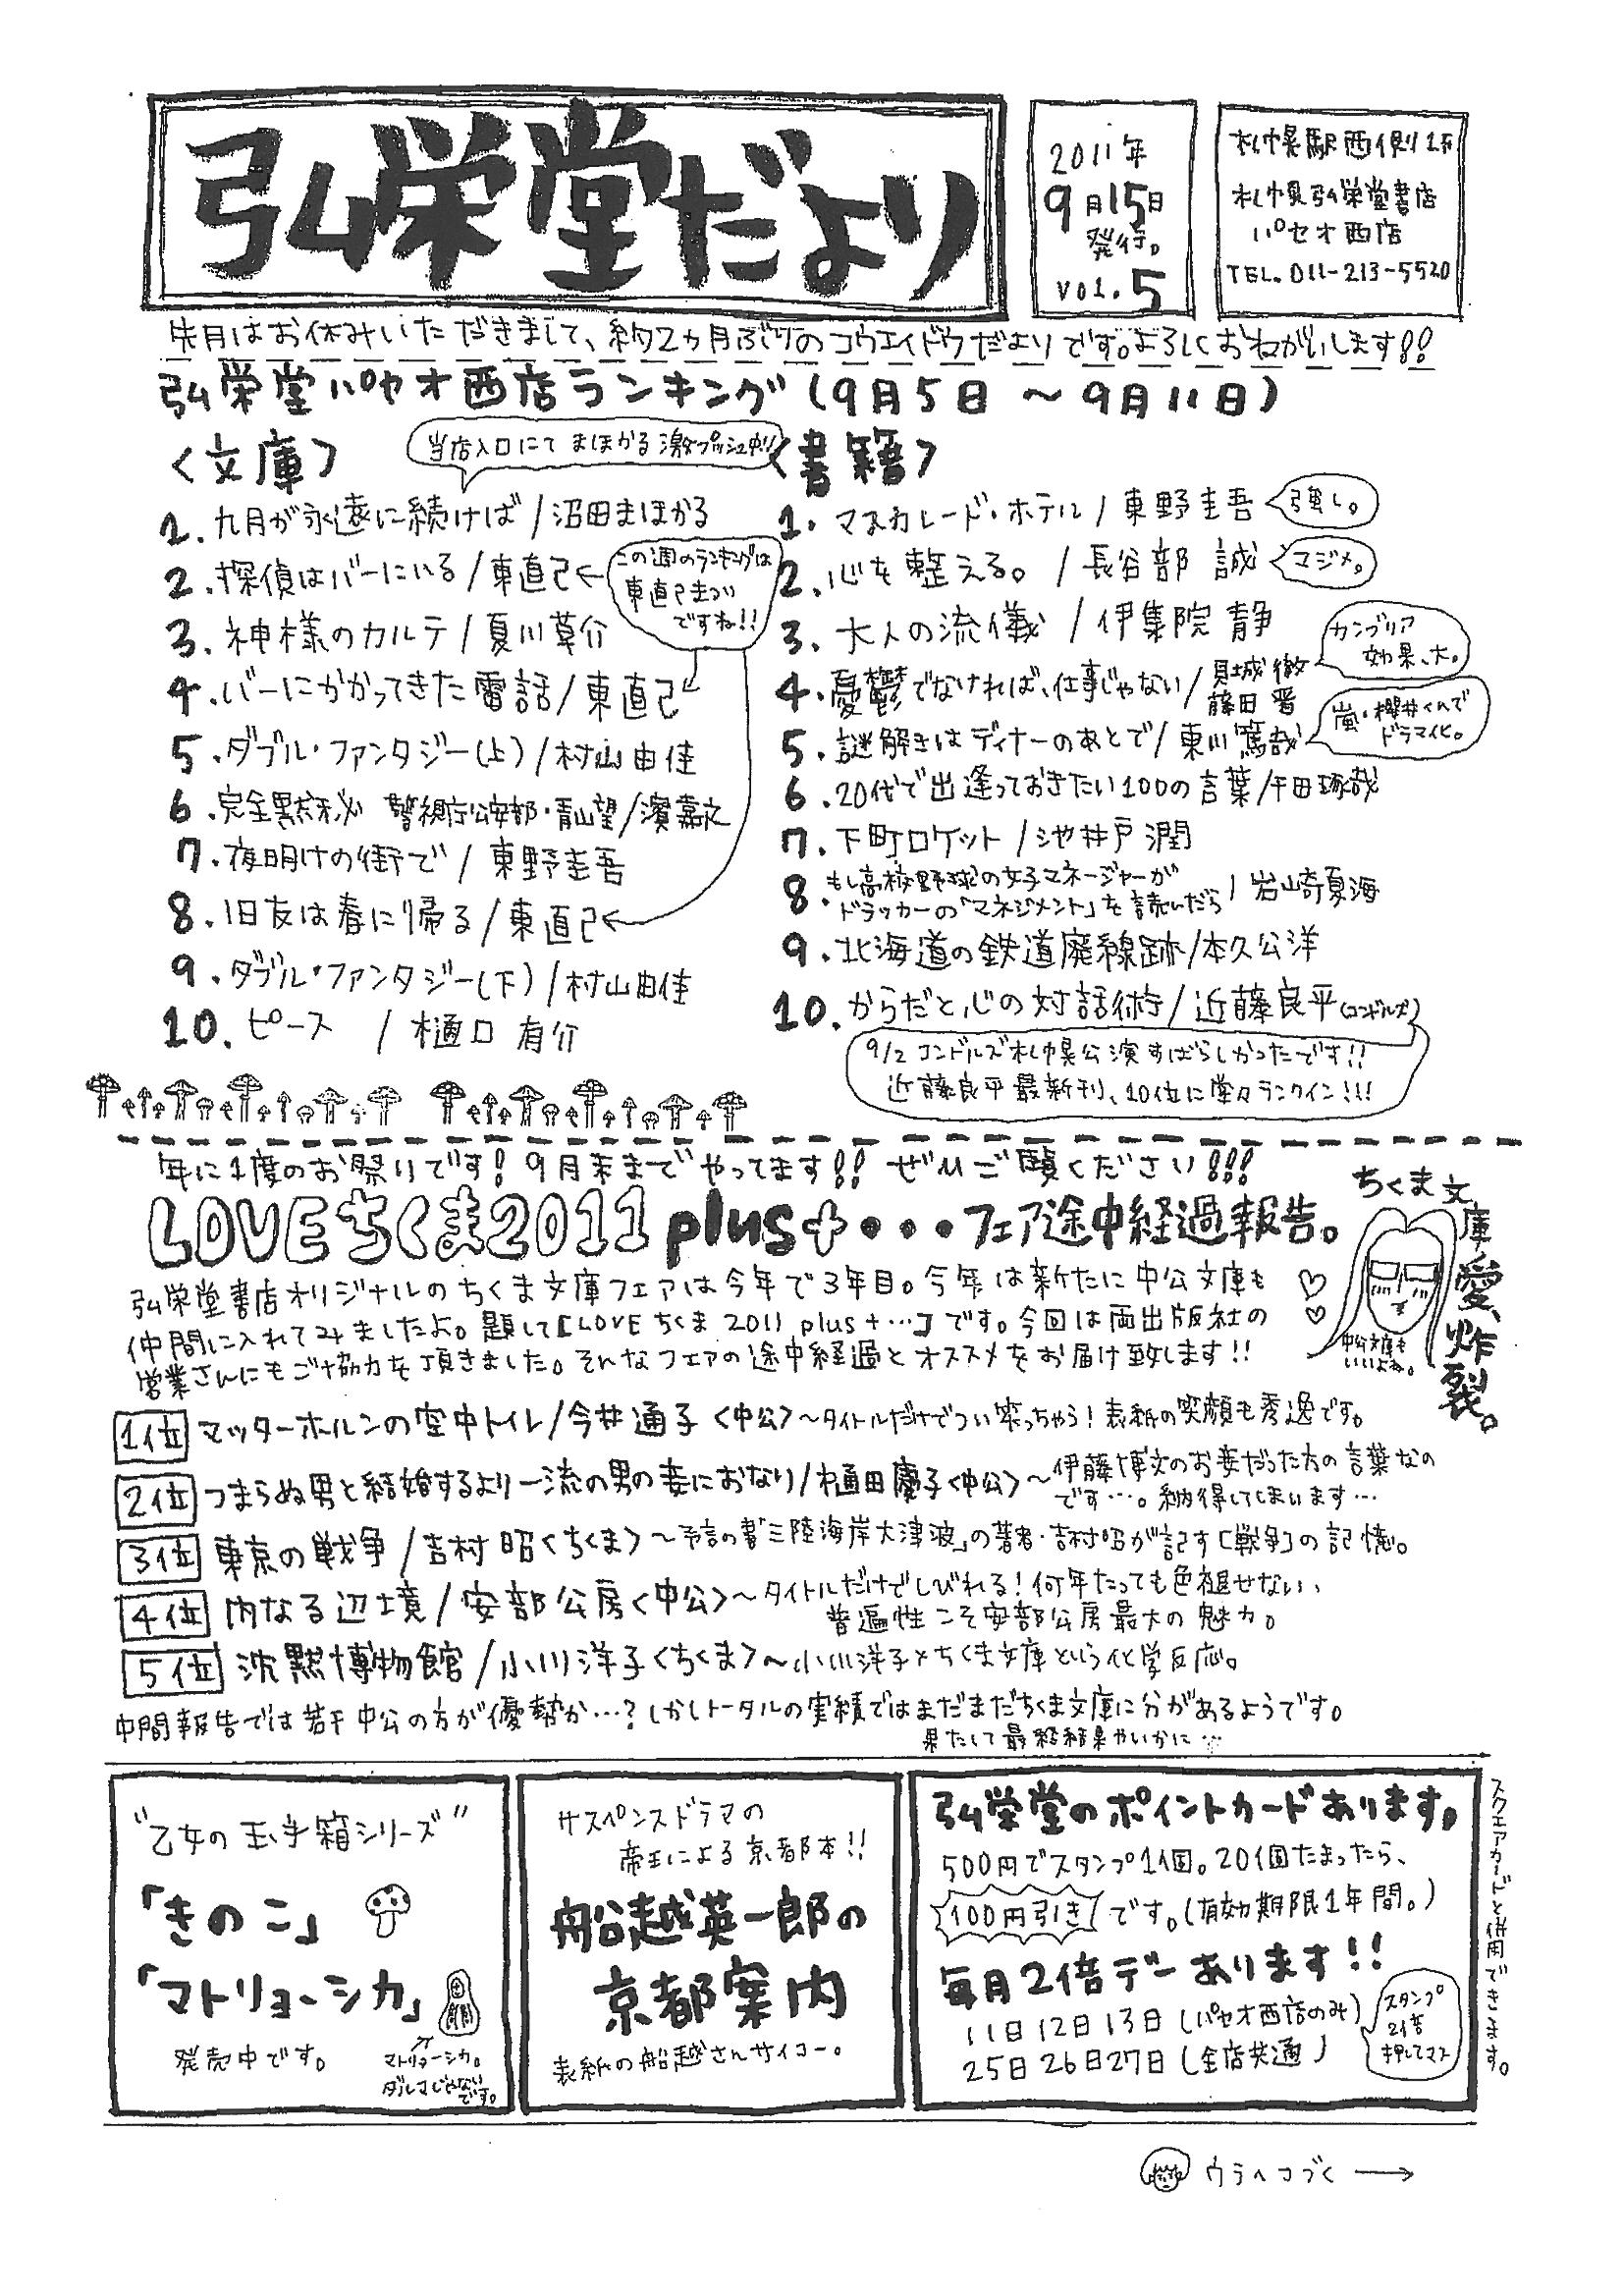 弘栄堂だより
2011年
9月15日
発行。
vol.5
札幌駅西側1F
札幌弘栄堂書店
パセオ西店
TEL.011-213-5520
先月はお休みいただきまして、約2ヵ月ぶりのコウエイドウだよりです。よろしくおねがいします!!
弘栄堂パセオ西店ランキング(9月5日〜9月11日)
〈文庫〉
当店入口にてまほかる激プッシュ中!!
1.九月が永遠に続けば/沼田まほかる
2.探偵はバーにいる/東直己
この週のランキングは
東直己まつり
ですね!!
3.神様のカルテ/夏川草介
4.バーにかかってきた電話/東直己
5.ダブル・ファンタジー(上)/村山由佳
6.完全黙秘 警視庁公安部・青山望/濱嘉之
7.夜明けの街で/東野圭吾
8.旧友は春に帰る/東直己
9.ダブル・ファンタジー(下)/村山由佳
10.ピース/樋口有介
〈書籍〉
1.マスカレード・ホテル/東野圭吾
強し。
2.心を整える。/長谷部 誠
マジメ。
3.大人の流儀/伊集院 静
4.憂鬱でなければ、仕事じゃない/見城徹
藤田晋
カンブリア
効果、大。
5.謎解きはディナーのあとで/東川篤哉
嵐・櫻井くんで
ドラマ化。
6.20代で出逢っておきたい100の言葉/千田琢哉
7.下町ロケット/池井戸潤
8.もし高校野球の女子マネージャーが
ドラッカーの「マネジメント」を読んだら/岩崎夏海
9.北海道の鉄道廃線跡/本久公洋
10.からだと心の対話術/近藤良平(コンドルズ)
9/2 コンドルズ札幌公演すばらしかったです!!
近藤良平最新刊、10位に堂々ランクイン!!!
年に1度のお祭りです!9月末までやってます!!ぜひご覧ください!!!
LOVEちくま2011 plus+・・・フェア途中経過報告。
ちくま文庫愛、炸裂。
中公文庫も
いいよね。
弘栄堂書店オリジナルのちくま文庫フェアは今年で3年目。今年は新たに中公文庫も
仲間に入れてみましたよ。題して[LOVE ちくま 2011 plus+…]です。今回は両出版社の
営業さんにもご協力を頂きました。そんなフェアの途中経過とオススメをお届け致します!!
1位 マッターホルンの空中トイレ/今井通子〈中公〉〜タイトルだけでつい笑っちゃう!表紙の笑顔も秀逸です。
2位 つまらぬ男と結婚するより一流の男の妾におなり/樋田慶子〈中公〉〜伊藤博文のお妾だった方の言葉なの
です…。納得してしまいます…
3位 東京の戦争/吉村昭〈ちくま〉〜予言の書「三陸海岸大津波」の著者・吉村昭が記す[戦争]の記憶。
4位 内なる辺境/安部公房〈中公〉〜タイトルだけでしびれる!何年たっても色褪せない、
普遍性こそ安部公房最大の魅力。
5位 沈黙博物館/小川洋子〈ちくま〉〜小川洋子とちくま文庫という化学反応。
中間報告では若干中公の方が優勢か…?しかしトータルの実績ではまだまだちくま文庫に分があるようです。
果たして最終結果やいかに…
“乙女の玉手箱シリーズ”
「きのこ」
「マトリョーシカ」
発売中です。
マトリョーシカ。
ダルマじゃない
です。
サスペンスドラマの
帝王による京都本!!
船越英一郎の
京都案内
表紙の船越さんサイコー。
弘栄堂のポイントカードあります。
500円でスタンプ1個。20個たまったら、
100円引きです。(有効期限1年間。)
毎月2倍デーあります!!
11日12日13日(パセオ西店のみ)
25日26日27日(全店共通)
スタンプ
2倍
押してマス
スクエアカードと併用できます。
ウラへつづく→